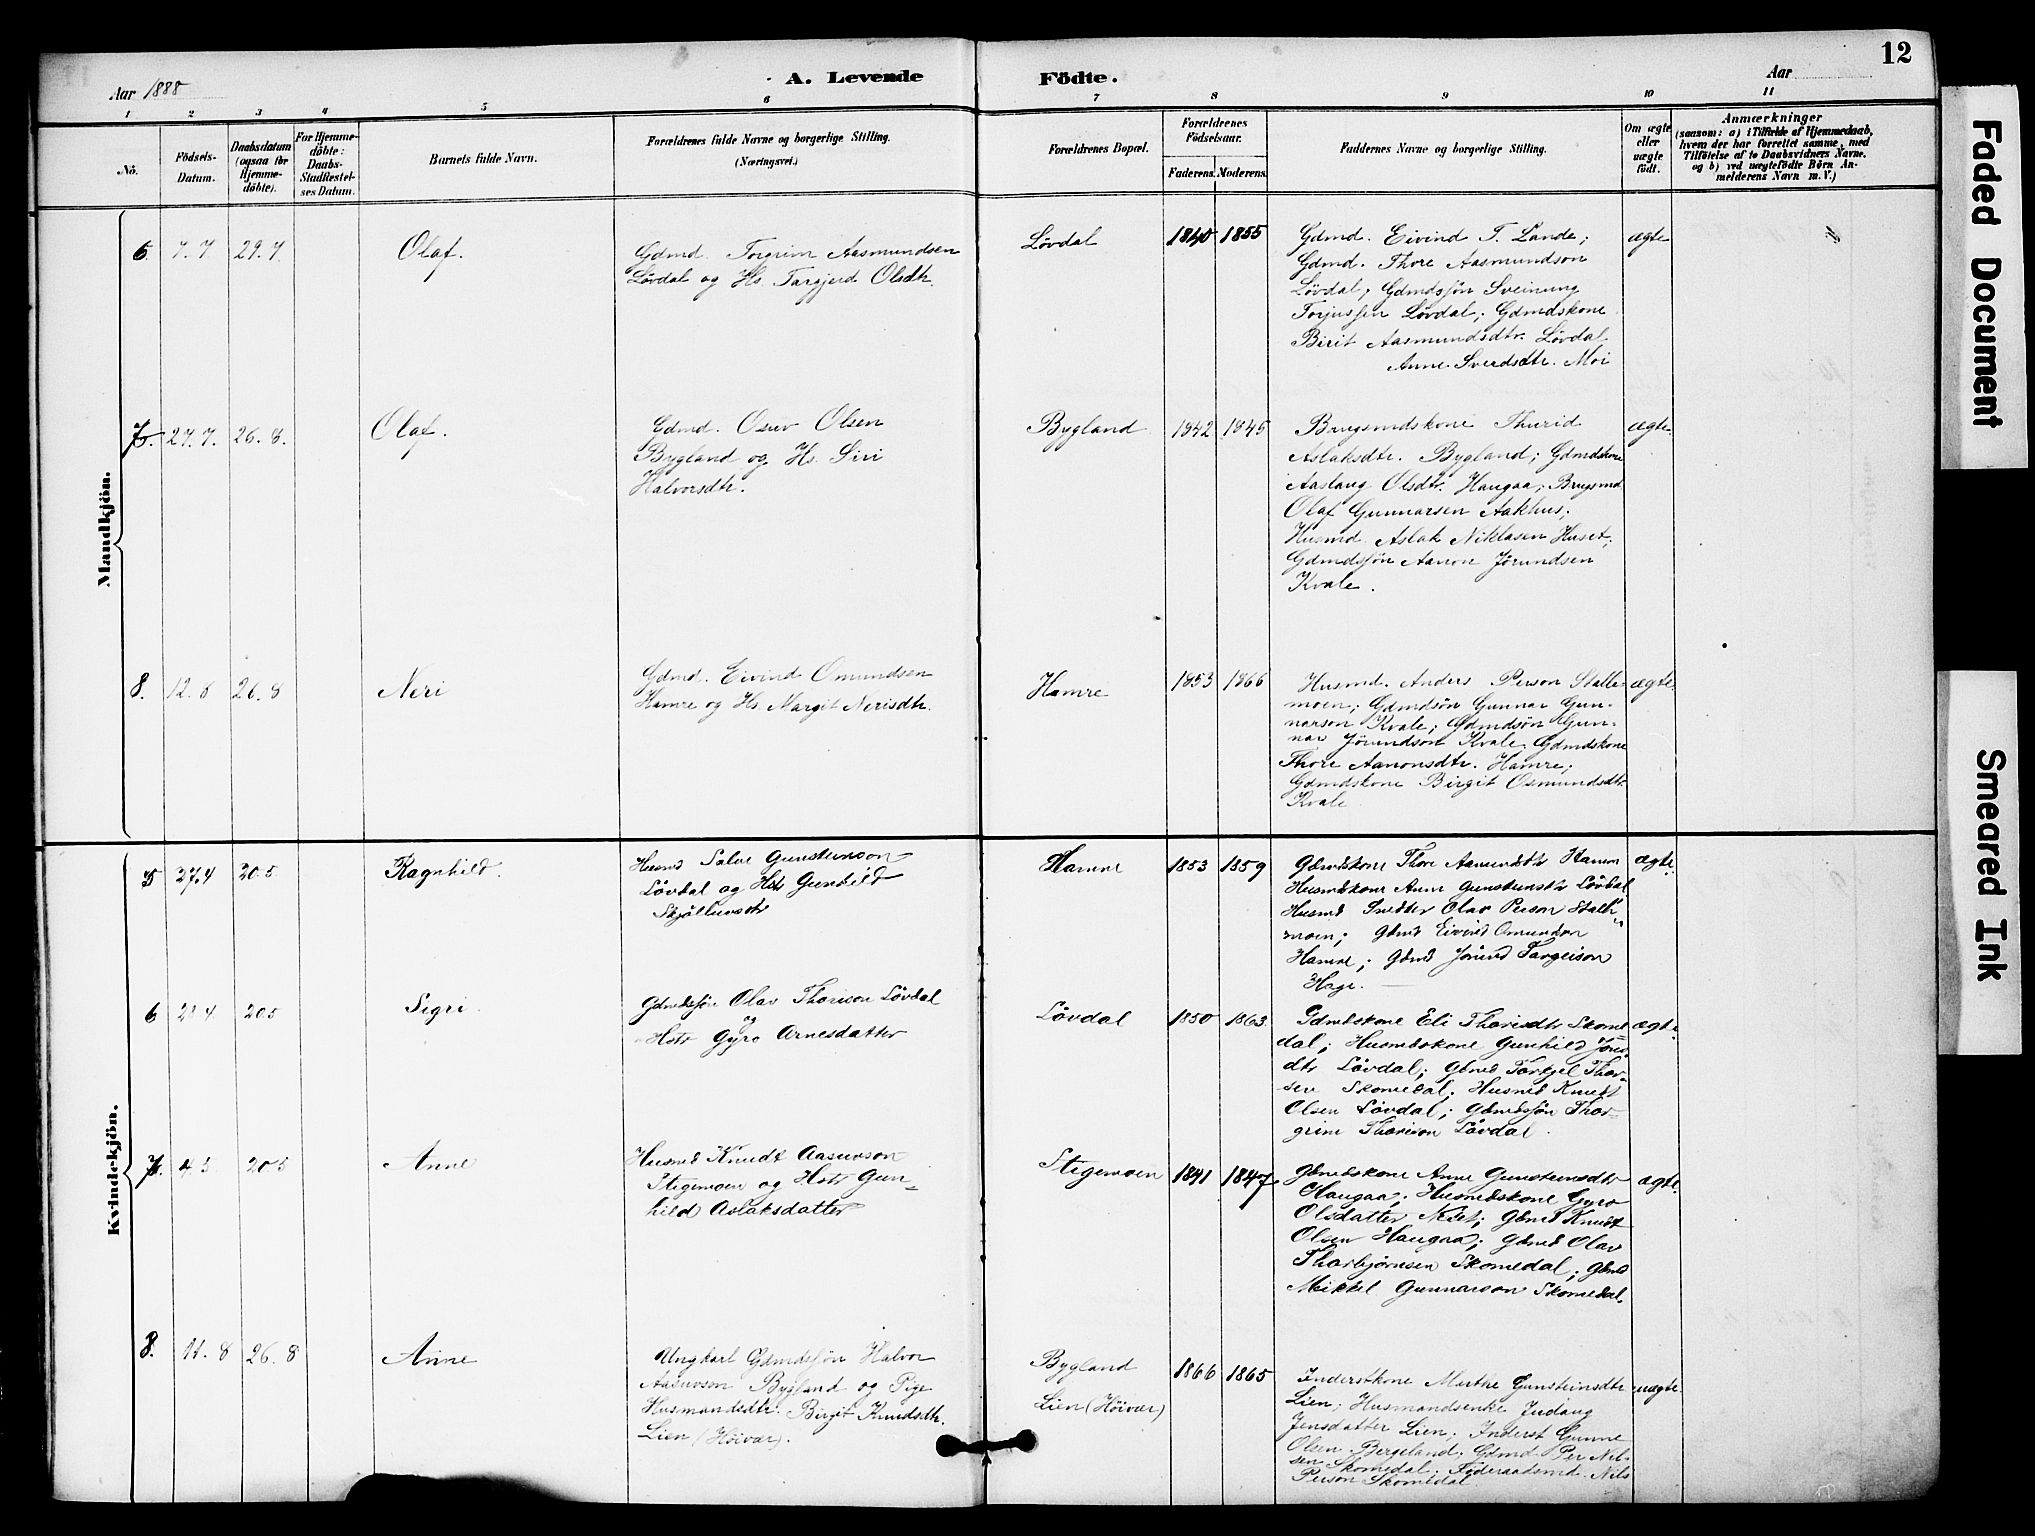 12
A. Levende Födte.
Aar 1888
Aar
1 2 3 4 5 6 7 8 9 10 11
No.
Födsels-Datum.
Daabsdatum (ogsaa for Hjemme-döbte).
For Hjemme-döbte: Daabs-Stadfæstel-ses Datum.
Barnets fulde Navn.
Forældrenes fulde Navne og borgerlige Stilling. (Næringsvei.)
Forældrenes Bopæl.
Forældrenes Födselsaar.
Faderens. Moderens.
Faddernes Navne og borgerlige Stilling.
Om ægte eller uægte födt.
Anmærkninger
(saasom: a) i Tilfælde af Hjemmedaab, hvem der har forrettet samme, med Tilföielse af to Daabsvidners Navne. og b) ved uægtefödte Börn An-melderens Navn m. V.)
Mandkjön.
6. 7. 7 29. 7. Olaf.
Gdmd. Torgrim Aasmundsen
Lövdal og Hs. Targjerd Olsdtr.
Lövdal 1840 1855
Gdmd. Eivind T. Lande;
Gdmd. Thore Aasmundson
Lövdal; Gdmdsjön Sveinung
Torjussen Lövdal; Gdmdskone
Birit Aasmundsdtr. Lövdal
Anne Sverdsdtr. Moi
ægte
7. 27. 7. 26. 8. Olaf.
Gdmd. Osuv Olsen
Bygland og Hs. Siri
Halvorsdtr.
Bygland 1842 1845
Brugsmdskone Thurid
Aslaksdtr. Bygland; Gdmdskone
Aaslaug Olsdtr. Haugaa; Brugsmd
Olaf Gunnarsen Aakhus;
Husmd. Aslak Niklasen Huset;
Gdmdsjön Aanon Jörundsen
Kvale.
ægte
8. 12. 8 26. 8 Neri
Gdmd. Eivind Omundsen
Hamre og Hs. Margit Nerisdtr.
Hamre 1853 1866
Husmd. Anders Person Stalle-
moen; Gdmdsön Gunnar Gun-
narson Kvale; Gdmdsön Gun-
nar Jörundson Kvale; Gdmdskone
Thore Aanonsdtr. Hamre;
Gdmdskone Birgit Osmundsdtr.
Kvale
ægte
Kvindekjön.
5 27.4 20 5 Ragnhild.
Husmd Salve Gunsteinson
Lövdal og Hstr Gunhild
Hamre 1853 1859
Gdmdskone Thore Hamre
Husmdskone Anne Gunsteinsdtr Lövdal
Husmd Olav Person Stalle-
moen; Gdmd Eivind Omundson
Hamre; Gdmd Jörund Targeison
Hage.
ægte
6 20 5 Sigri.
Gdmdssjön Olav Thorison Lövdal
og
Hstr Gyro Arnesdatter
Lövdal 1850 1863
Gdmdskone Eli Thorisdtr Skome-
dal; Husmdskone Gunhild
dtr Lövdal; Gdmd Torkjel Thor-
sen Skomedal; Husmd Knudt
Olsen Lövdal; Gdmdssjön Thor-
grim Thorison Lövdal.
ægte
7. 4 5 20 5 Anne
Husmd Knudt Aasuvson
Stigemoen og Hstr Gun-
hild Aslaksdatter
Stigemoen 1841 1847
Gdmdskone Anne Gunsteinsdtr
Haugaa; Husmdskone Gyro
Olsdatter Neset; Gdmd Knudt
Olsen Haugaa; Gdmd Olav
Thorbjörnsen Skomedal; Gdmd
Mikkel Gunnarson Skomedal.
ægte
8. 11. 8 26. 8 Anne
Ungkarl Gdmdsjön Halvor
Aasuvson Bygland og Pige
Husmandsdtr. Birgit Knudsdtr.
Lien (Höivær).
Bygland
Lien (Höivær)
1866 1865
Inderstkone Marthe Gunsteinsdtr
Lien; Husmandsenke Judang
Jensdatter Lien; Inderst Gunne
Olsen Bergeland; Gdmd. Per Nil-
sen Skomedal; Föderaadsmd. Nils
Person Skomedal
uægte
Faded Document
Smeared Ink